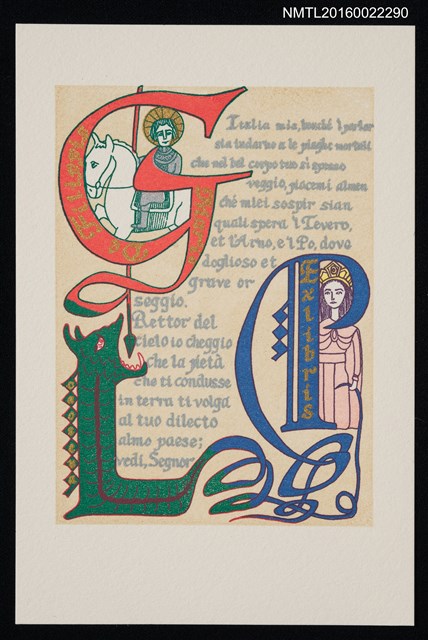 NMTL20160022290
G
Italia mia, benché 'l parlar
sia indarno a le piaghe mortali
che nel bel corpo tuo si spesso
veggio, piacemi almen
ché miei sospir sian
quali spera 'l Tevero,
et l'Arno, e 'l Po, dove
doglioso et
grave or
seggio.
Rettor del
cielo io cheggio
che la pietà
che ti condusse
in terra ti volga
al tuo dilecto
almo paese;
vedi, Segnor
L
P
Exlibris